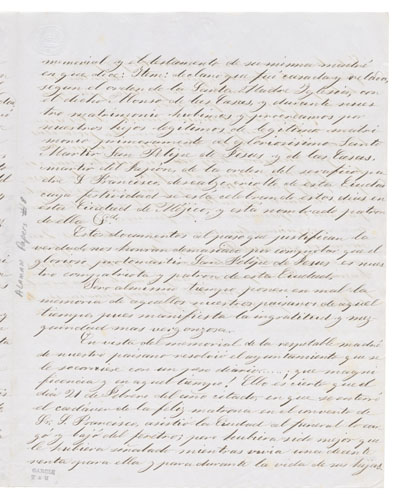 memorial y el testamento de su misma madre
en que dice: Item: declaro que fui casada y velada
segun el orden de la Santa Madre Iglesia con
el dicho Alonso de las Casas, y durante nues
tro matrimonio hubimos y procreamos por
nuestros hijos legitimos de legitimo matri
monio primeramente al gloriosisimo Santo
Martir San Felipe de Jesus y de las Casas.
martir del Japon de la orden del serafico pa
dre S. Francisco, descalzo, criollo de esta Ciudad
cuya festividad se esta celebrando estos dias en
esta Ciudad de Mejico, y esta nombrado patron
de ella &a.
Estos documentos al paso que justifican la
verdad nos honran demasiado por ser que el
glorioso protomartir San Felipe de Jesus es nues
tro compatriota y patron de esta Ciudad.
Pero al mismo tiempo ponen en mal la
memoria de aquellos nuestros paisanos de aquel
tiempo, pues manifiesta la ingratitud y mez
quindad mas vergonzosa.
En vista del memorial de la respetable madre
de nuestro paisano resolvió el ayuntamiento que se
le socorriese con un peso diario ¡que magni
ficencia y en aquel tiempo! Ello es cierto que el
dia 21 de Febrero del año citado, en que se enterró
el cadaver de la feliz matrona en el convento de
Sr. S. Francisco, asistió la Ciudad al funeral
y bajó del feretro; pero hubiera sido mejor que
le hubiera señalado mientras vivia una decente
renta para ella y para durante la vida de sus hijas.
Alaman Papers #8
GARCIA